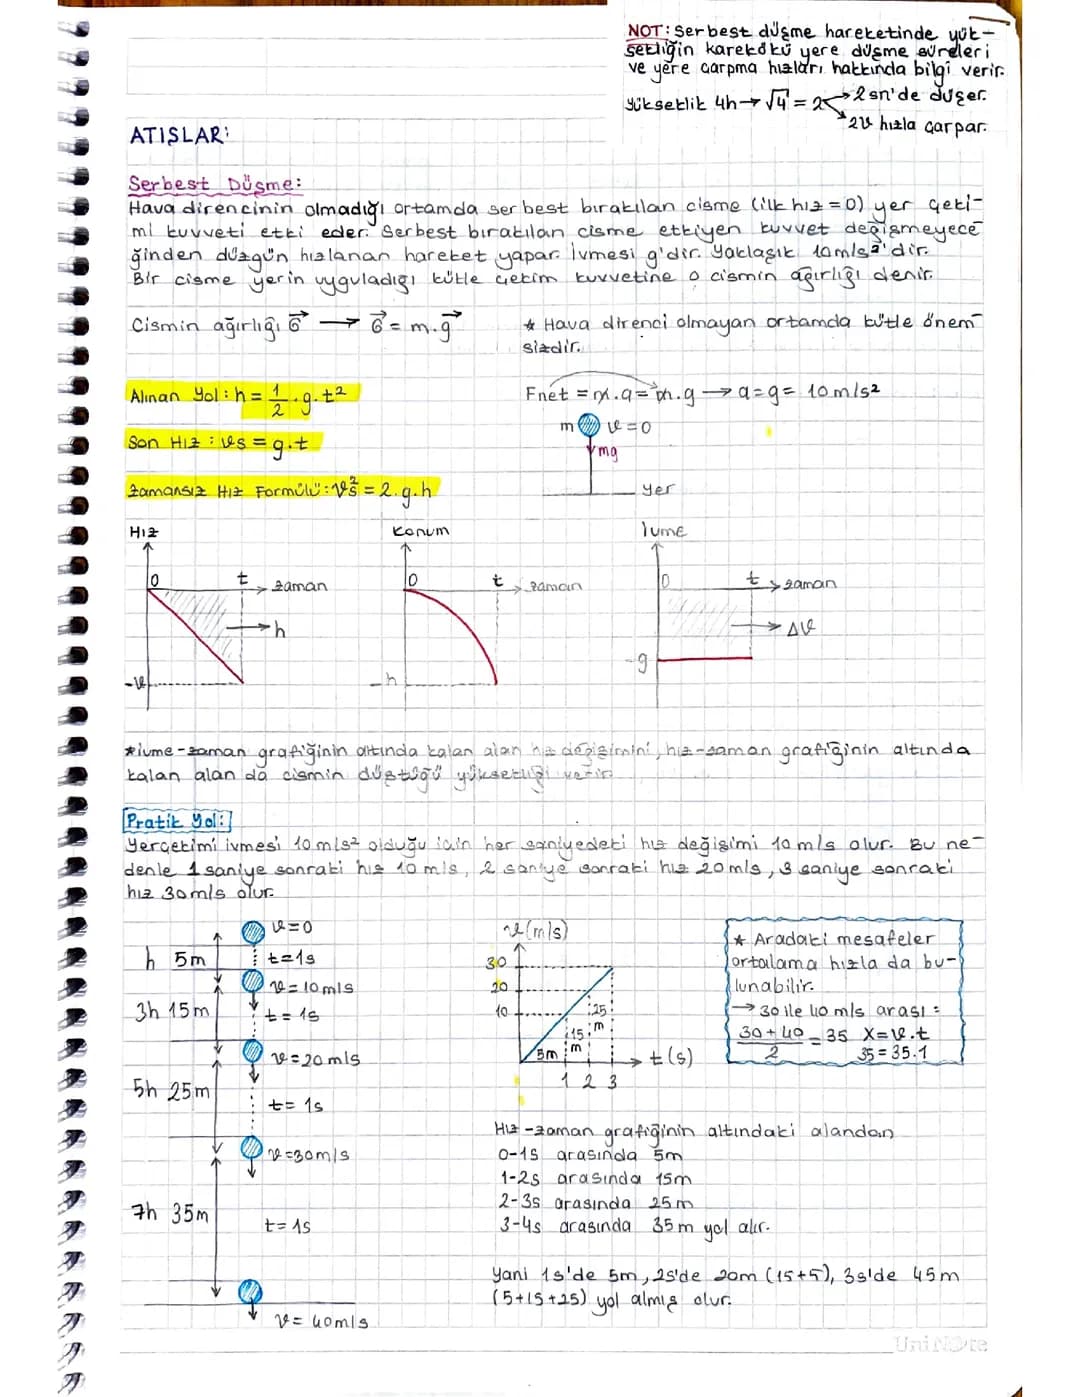 NOT: Serbest düşme hareketinde yük-
sekliğin karekökü yere düşme süreleri
ve yere çarpma hızları hakkında bilgi verir.
Yükseklik 4h → √4 = 2 → 2sn'de düşer.
2v hızla çarpar.
ATIŞLAR:
Serbest Düşme:
Hava direncinin olmadığı ortamda serbest bırakılan cisme (ilk hız = 0) yer çeki-
mi kuvveti etki eder. Serbest bırakılan cisme etkiyen kuvvet değişmeyece-
ğinden düzgün hızlanan hareket yapar. İvmesi g'dir. Yaklaşık 10m/s²'dir.
Bir cisme yerin uyguladığı kütle çekim kuvvetine o cismin ağırlığı denir.
Cismin ağırlığı G → G = m.g
* Hava direnci olmayan ortamda kütle önem-
sizdir.
Alınan Yol: h = 1/2 . g . t²
Fnet = m.a = m.g → a = g = 10 m/s²
m v = 0
Son Hız : vs = g.t
mg
Zamansız Hız Formülü: vs² = 2.g.h
yer
Hız
Konum
İvme
0 t zaman
0 t zaman
0 t zaman
h
Δv
-v
-h
-g
*İvme-zaman grafiğinin altında kalan alan hız değişimini, hız-zaman grafiğinin altında
kalan alan da cismin düştüğü yüksekliği verir.
Pratik Yol:
Yerçekimi ivmesi 10 m/s² olduğu için her saniyedeki hız değişimi 10 m/s olur. Bu ne-
denle 1 saniye sonraki hız 10 m/s, 2 saniye sonraki hız 20 m/s, 3 saniye sonraki
hız 30 m/s olur.
v=0
h 5m
t=1s
v=10m/s
3h 15m
t=1s
v=20m/s
5h 25m
t=1s
v=30m/s
7h 35m
t=1s
v=40m/s
v(m/s)
30
20
10
5m
15m
25m
t(s)
1 2 3
* Aradaki mesafeler
ortalama hızla da bu-
lunabilir.
→ 30 ile 40 m/s arası :
30+40/2 = 35 X=v.t
35=35.1
Hız-zaman grafiğinin altındaki alandan
0-1s arasında 5m
1-2s arasında 15m
2-3s arasında 25m
3-4s arasında 35m yol alır.
Yani 1s'de 5m, 2s'de 20m (15+5), 3s'de 45m
(5+15+25) yol almış olur.
UniNote